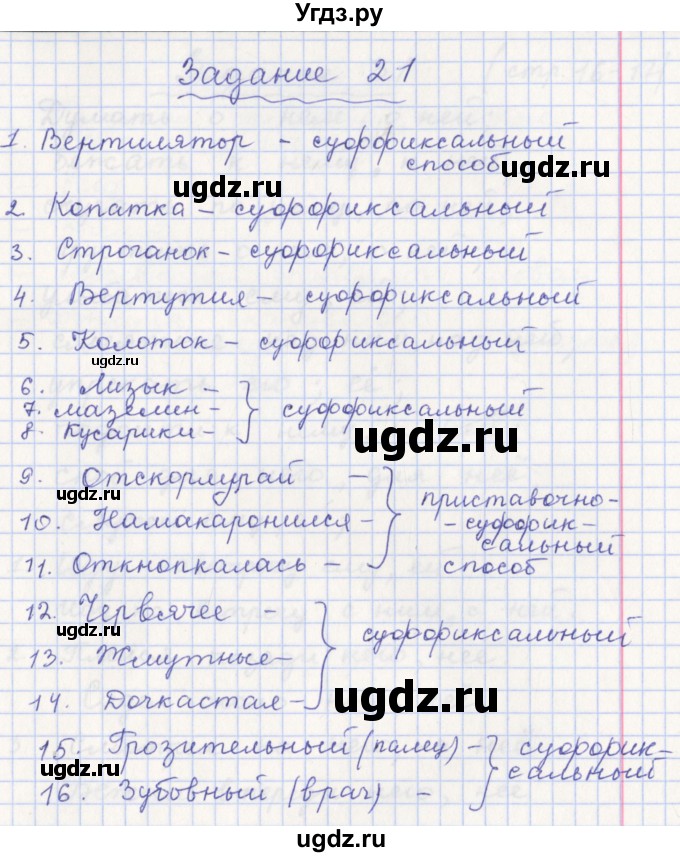 Угдз.ру
Задание 21
1. Вентилятор - суффиксальный
способ
ugdz.ru
ugdz.ru
2. Копатка - суффиксальный
3. Строганок - суффиксальный
4. Вертутия - суффиксальный
5. Колоток - суффиксальный
ugdz.ru
6. Лизык -
7. мазелин - } суффиксальный
8. Кусарики -
ugdz.ru
9. Отскорлупай -
ugdz.ru
10. Намакаронился - } приставочно-
- суффик-
сальный
11. Откнопкалась - способ
12. Червячее -
ugdz.ru
13. Жмутные - } суффиксальный
14. Дочкастая -
ugdz.ru
15. Грозительный (палец) - } суффик-
16. Зубовный (врач) - сальный
ugdz.ru